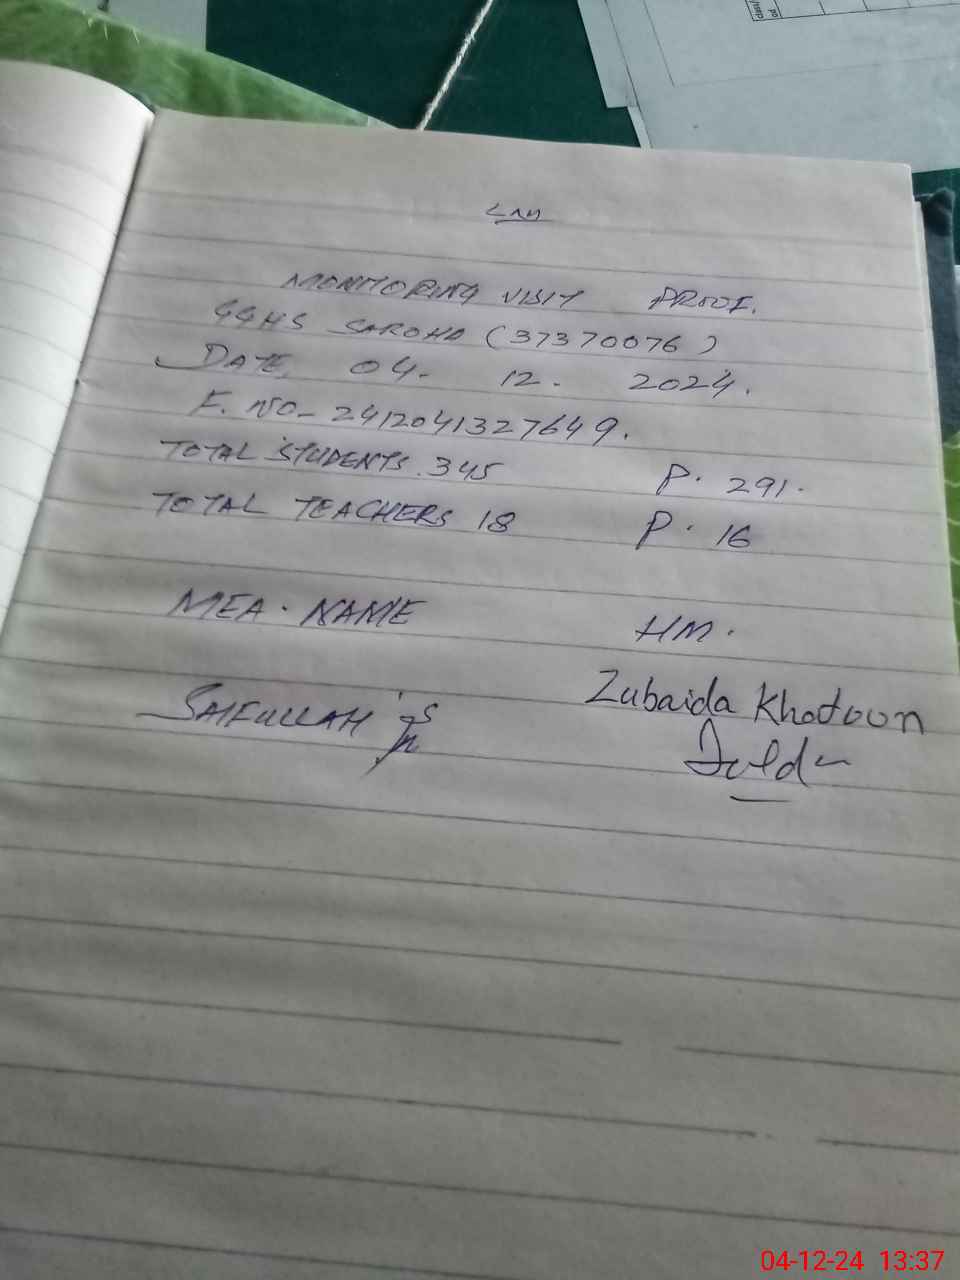 MONITORING VISIT PROOF.
GGHS SAROHA (37370076)
DATE, 04- 12- 2024.
F. NO- 2412041327649.
TOTAL STUDENTS. 345 P. 291.
TOTAL TEACHERS 18 P. 16
MEA. NAME HM.
SAIFULLAH Zubaida Khatoon
04-12-24 13:37